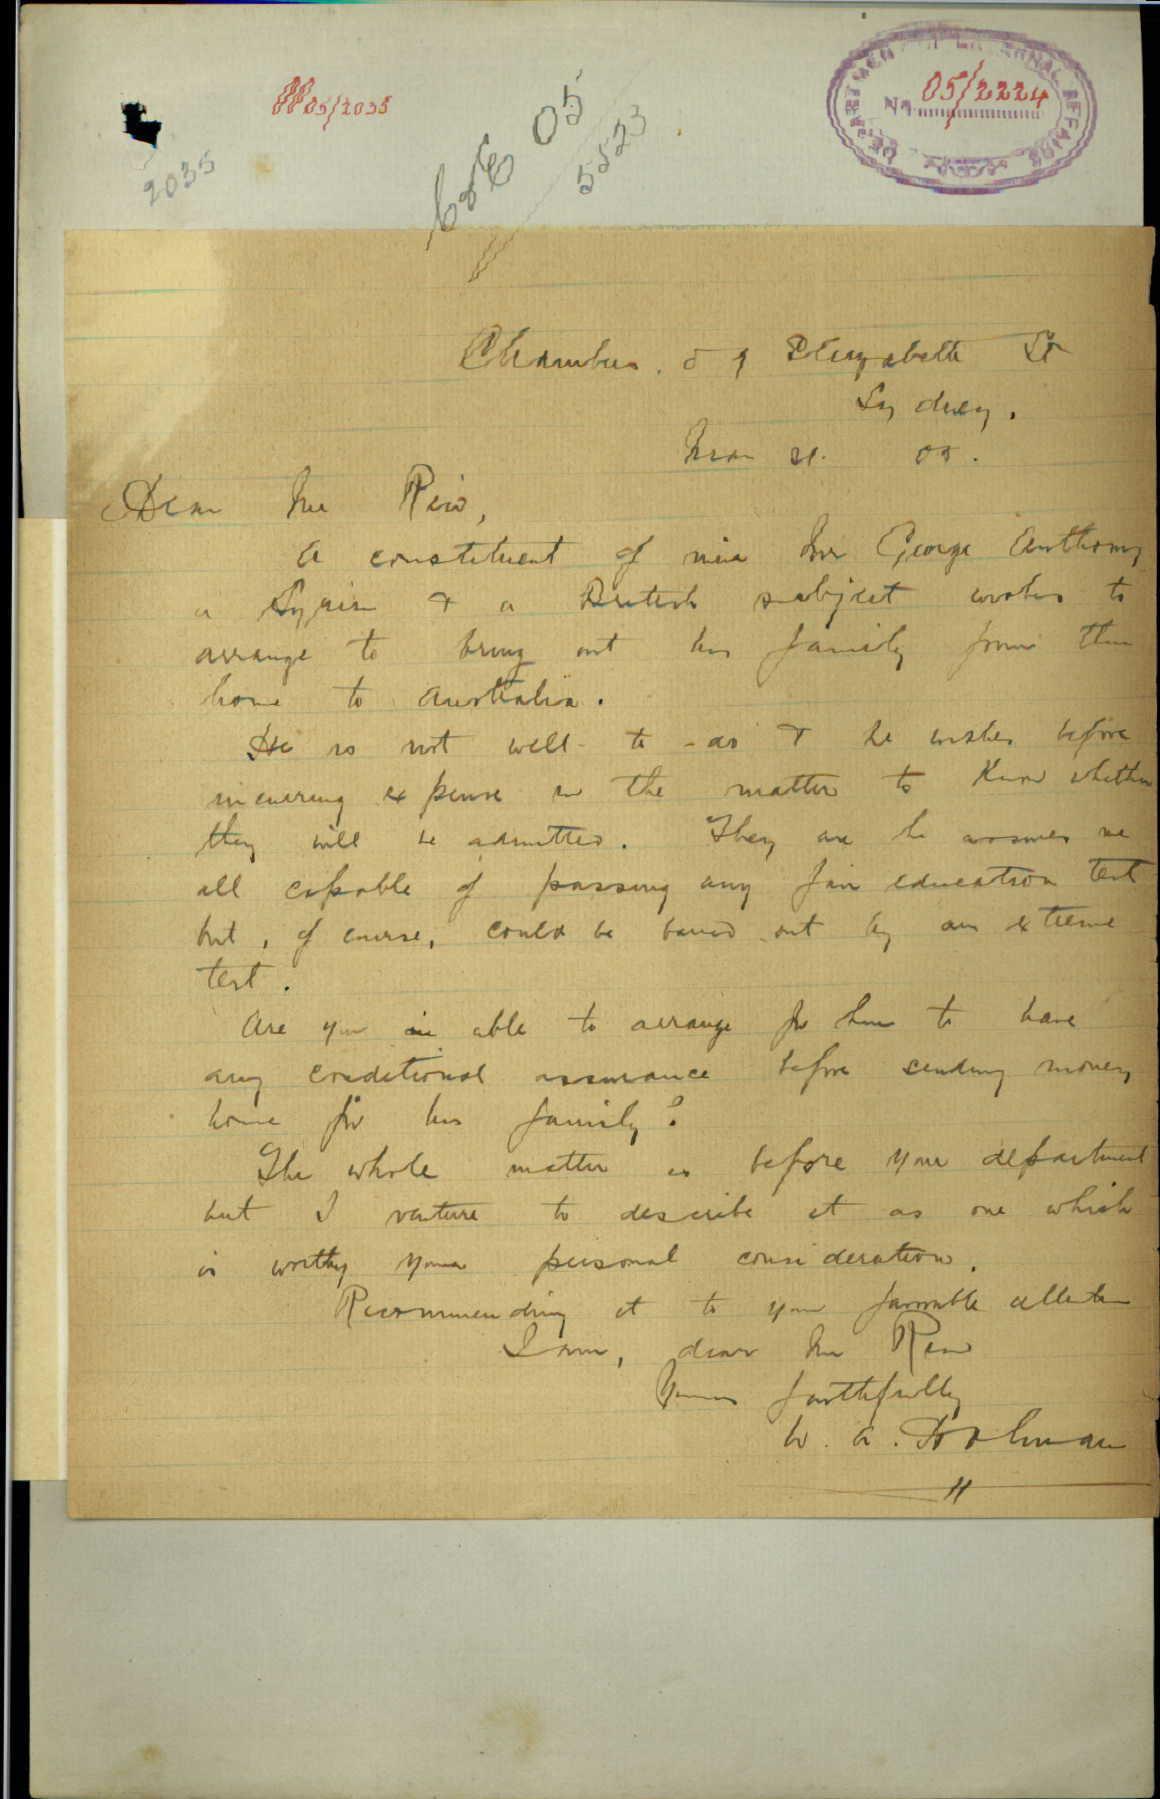 05/2035
2035
05
5523
DEPARTMENT OF EXTERNAL AFFAIRS
No. 05/2224
Chambers. 59 Elizabeth St
Sydney.
Mar 21. 05.
Dear Mr Reid,
A constituent of mine Mr George Anthony
a Syrian & a British subject wishes to
arrange to bring out his family from their
home to Australia.
He is not well-to-do & he wishes before
incurring expense in the matter to know whether
they will be admitted. They are he assures me
all capable of passing any fair education test
but, of course, could be barred out by an extreme
test.
Are you able to arrange for him to have
any conditional assurance before sending money
home for his family?
The whole matter is before your department
but I venture to describe it as one which
is worthy your personal consideration.
Recommending it to your favorable attention
I am, dear Mr Reid
Yours faithfully
W. A. Holman